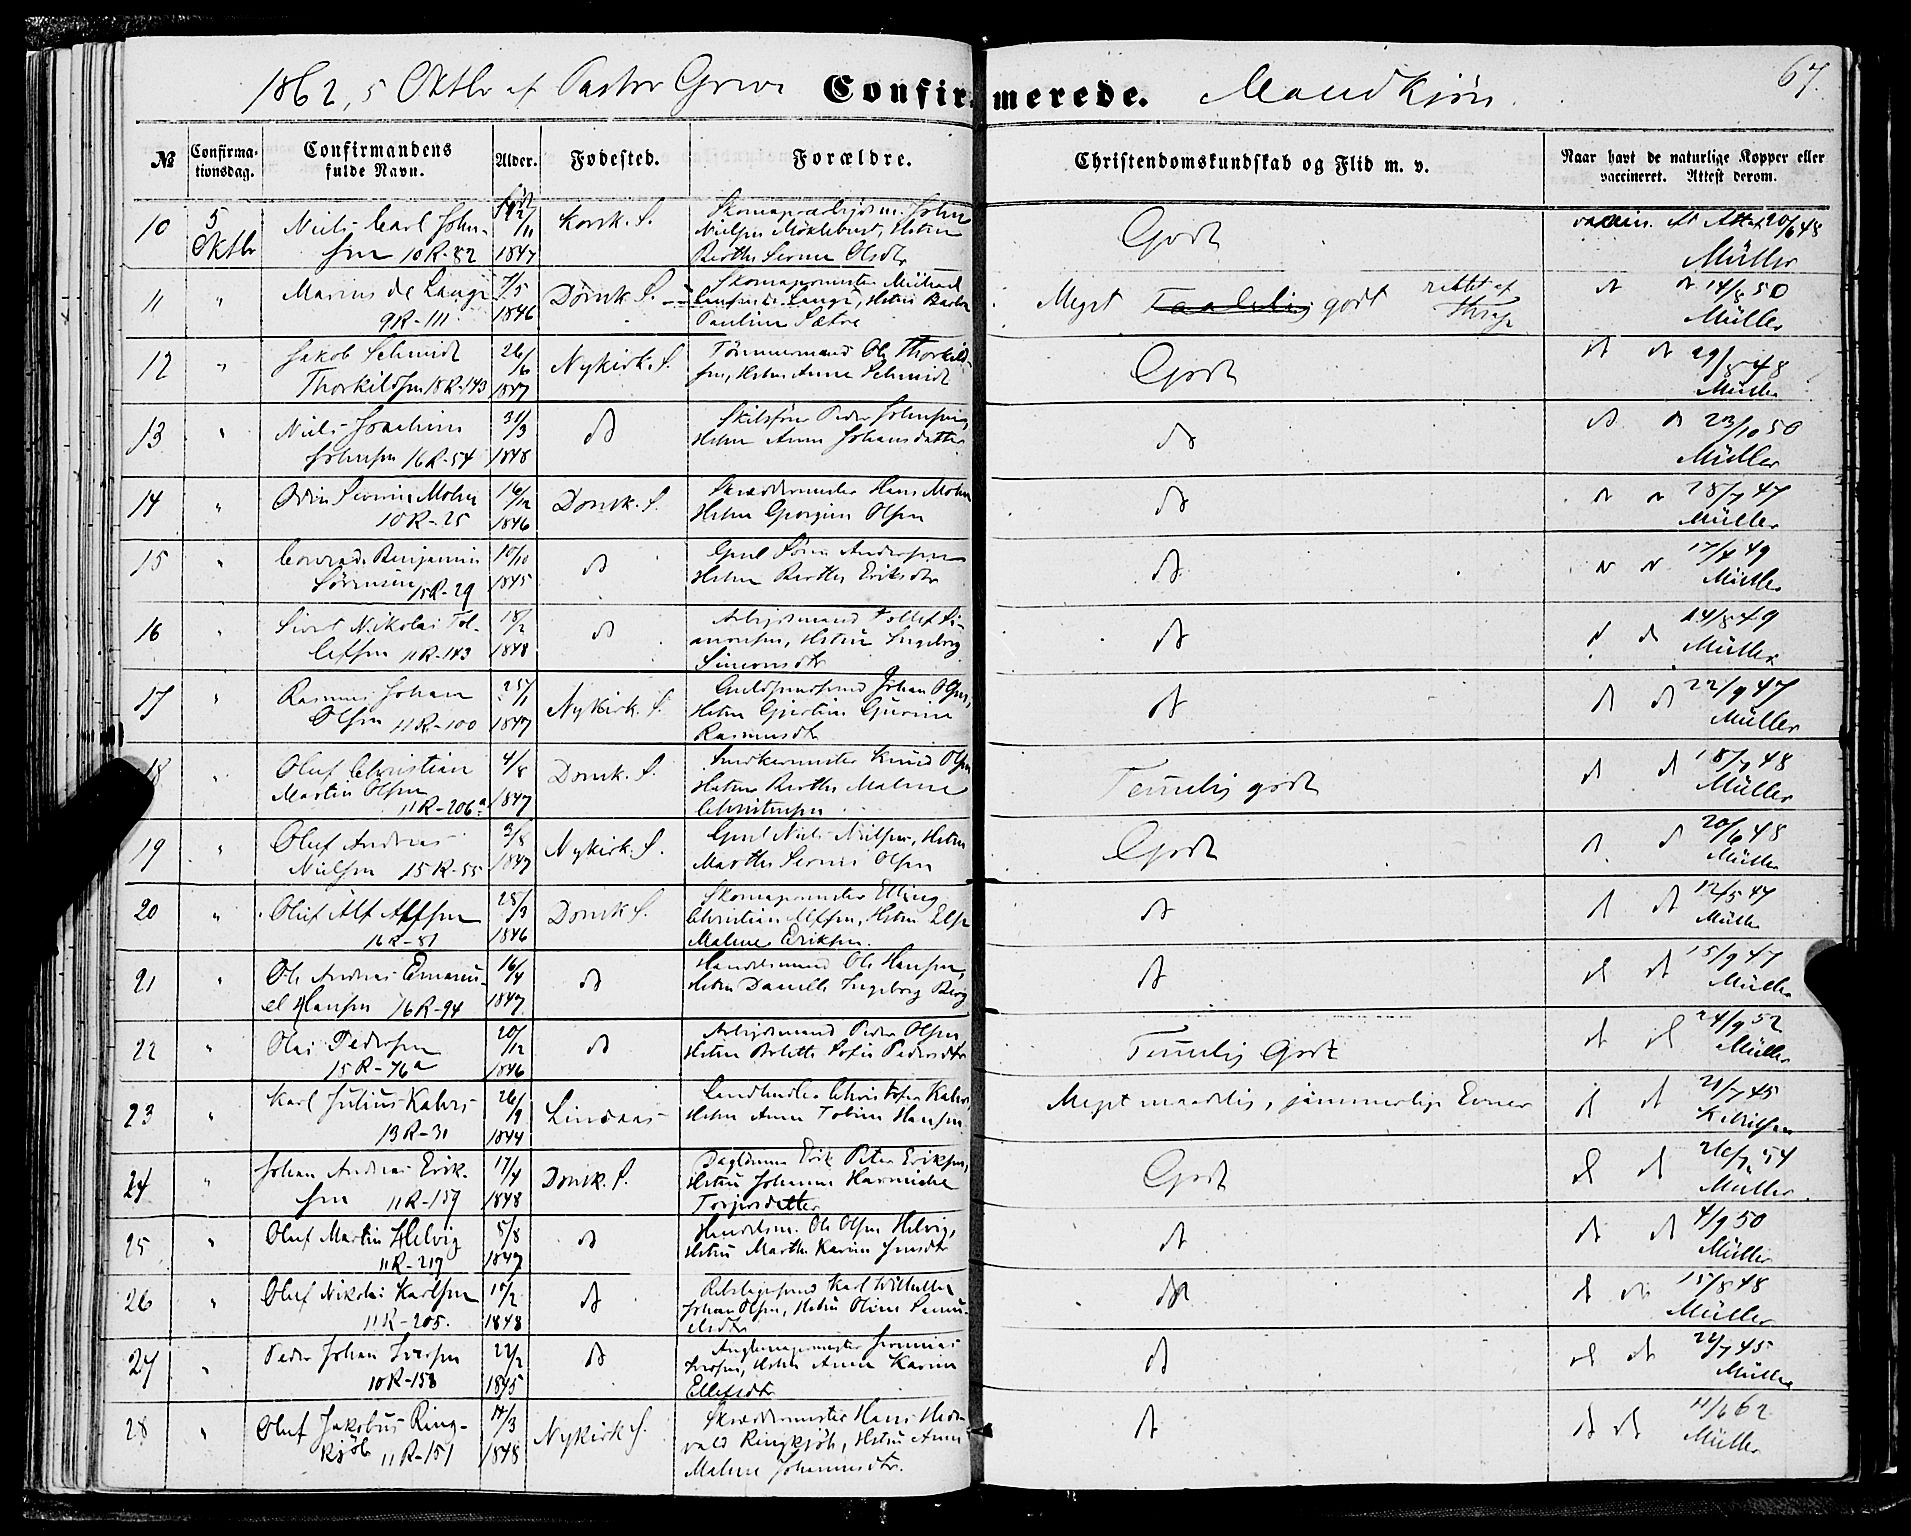 1862, 5 Oktbr af Pastor Greve Confirmerede. Mandkjøn. 67.
№ Confirmationsdag. Confirmandens fulde Navn. Alder. Fødested. Forældre. Christendomskundskab og Flid m. v. Naar havt de naturlige Kopper eller vaccineret. Attest derom.
10 5 Oktbr Niels Carl Johnsen 10R-82 Født /11 1847 Korsk. S. John Nielsen Hustru Berthe Serine Olsdtr Godt vaccin. Att 20/6 48 Müller
11 " Marius de Lange 9R-111 7/5 1846 Domk. S. Skomagermester Michael de Lange, Hustru Pauline Sætre Meget Taalelig godt rettet af dt dt 14/8 50 Müller
12 " Jakob Schmidt Thorkildsen 18R-143 26/6 1847 Nykirk. S. Tømmermand Ole Thorkildsen, Hustru Anne Schmidt Godt dt dt 29/8 48 Müller
13 " Niels Joachim Johnsen 16R-54 31/3 1848 dt Peder Johnsen, Hustru Anne Johansdatter dt dt dt 23/10 50 Müller
14 " Odin Severin Mohn 10R-25 16/12 1846 Domk. S. Skræddermester Hans Mohn Hustru Georgine Olsen dt dt dt 28/7 47 Müller
15 " Conrad Benjamin Sørensen 15R-29 10/10 1845 dt Søren Andersen Hustru Berthe Eriksdtr dt dt dt 17/4 49 Müller
16 " Sivert Nikolai Tollefsen 11R-143 18/2 1848 dt Arbeidsmand Tollef Simonsen, Hustru Ingeborg Simonsdtr dt dt dt 14/8 49 Müller
17 " Rasmus Johan Olsen 11R-100 25/1 1847 Nykirk. S. Guldsmedsvend Johan Olsen, Hustru Gjertine Gurine Rasmusdtr dt dt dt 22/9 47 Müller
18 " Oluf Christian Martin Olsen 11R-206a 4/8 1847 Domk. S. Snedkermester Knud Olsen Hustru Berthe Malene Christensen Temmelig godt dt dt 18/7 48 Müller
19 " Oluf Andreas Nielsen 15R-55 3/8 1847 Nykirk. S. Niels Nielsen, Hustru Marthe Serine Olsen Godt dt dt 20/6 48 Müller
20 " Oluf Alf Alfsen 16R-81 25/3 1846 Domk S. Skomagermester Elling Christian Alfsen, Hustru Else Malene Eriksen. dt dt dt 12/5 47 Müller
21 " Ole Andreas Emanuel Hansen 16R-94 16/4 1847 dt Handelsmand Ole Hansen, Hustru Danielle Ingeborg Berg dt dt dt 15/9 47 Müller
22 " Olai Pedersen 15R-76a 20/12 1846 dt Arbeidsmand Peder Olsen Hustru Bolette Sofie Pedersdtr Temmelig Godt dt dt 24/9 52 Müller
23 " Karl Julius Kahrs 13R-31 26/9 1844 Lindaas Landhandler Christofer Kahrs, Hustru Anne Tobine Hansen Meget maadelig, jammerlige Evner dt dt 21/7 45
24 " Johan Andreas Eriksen 11R-159 17/4 1848 Domk. S. Erik Peter Eriksen, Hustru Johanne Torjersdatter Godt dt dt 26/7 54 Müller
25 " Oluf Martin Helvig 11R-217 5/8 1847 dt Handelsm. Ole Olsen Helvig, Hustru Marthe Karine Jensdtr dt dt dt 4/9 50 Müller
26 " Oluf Nikolai Karlsen 11R-205. /2 1848 dt Karl Wilhelm Johan Olsen, Hustru Oline Samuelsdtr dt dt dt 15/8 48 Müller
27 " Peder Johan Iversen 10R-158 22/2 1845 dt Jeremias Iversen, Hustru Anne Karine Ellefsdtr dt dt dt 22/7 45 Müller
28 " Oluf Jakobus Ringkjøb 11R-151 /3 1848 Nykirk S. Skræddermester Hans Ringkjøb, Hustru Anne Malene Johannesdtr. dt dt dt 11/6 62 Müller